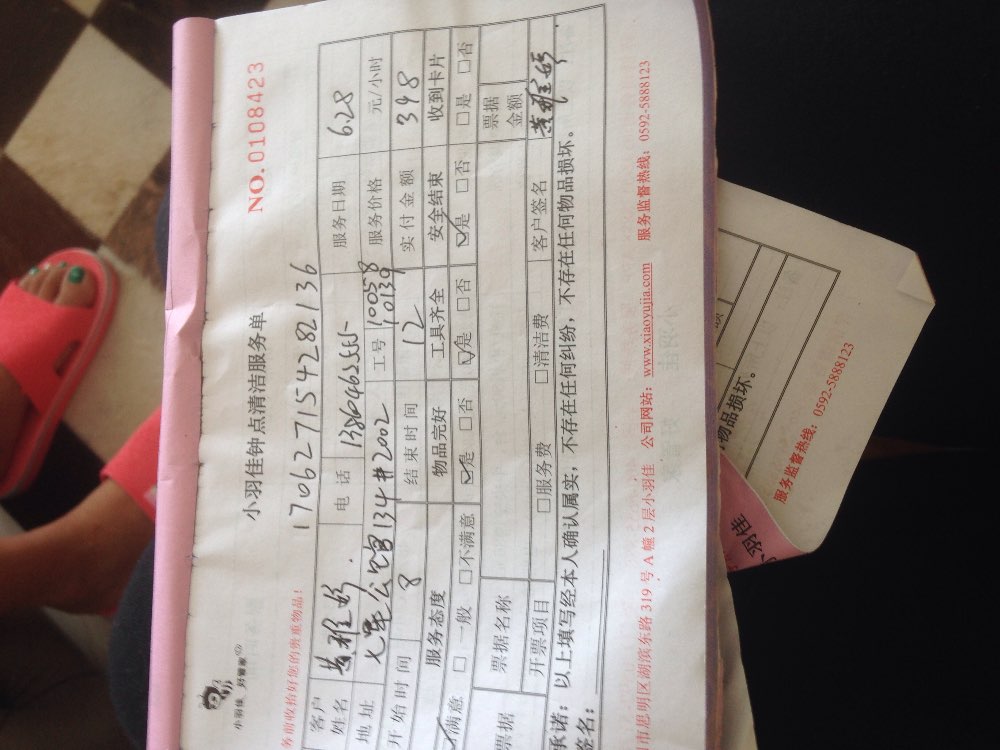 小羽佳 好管家
小羽佳钟点清洁服务单
NO.0108423
务前收拾好您的贵重物品！
170627154282136
客户姓名 黄雅妤 电话 13860462555 服务日期 6.28
地址 #2002 工号 10058 10139 服务价格 元/小时
开始时间 8 结束时间 12 实付金额 398
服务态度 物品完好 工具齐全 安全结束 收到卡片
☑满意 □一般 □不满意 ☑是 □否 ☑是 □否 ☑是 □否 □是 □否
票据 票据名称 票据金额
开票项目 □服务费 □清洁费 客户签名
承诺：以上填写经本人确认属实，不存在任何纠纷，不存在任何物品损坏。
签名：
市思明区湖滨东路 319 号 A 幢 2 层小羽佳 公司网站：www.xiaoyujia.com 服务监督热线：0592-5888123
物品损坏。
服务监督热线：0592-5888123
小羽佳